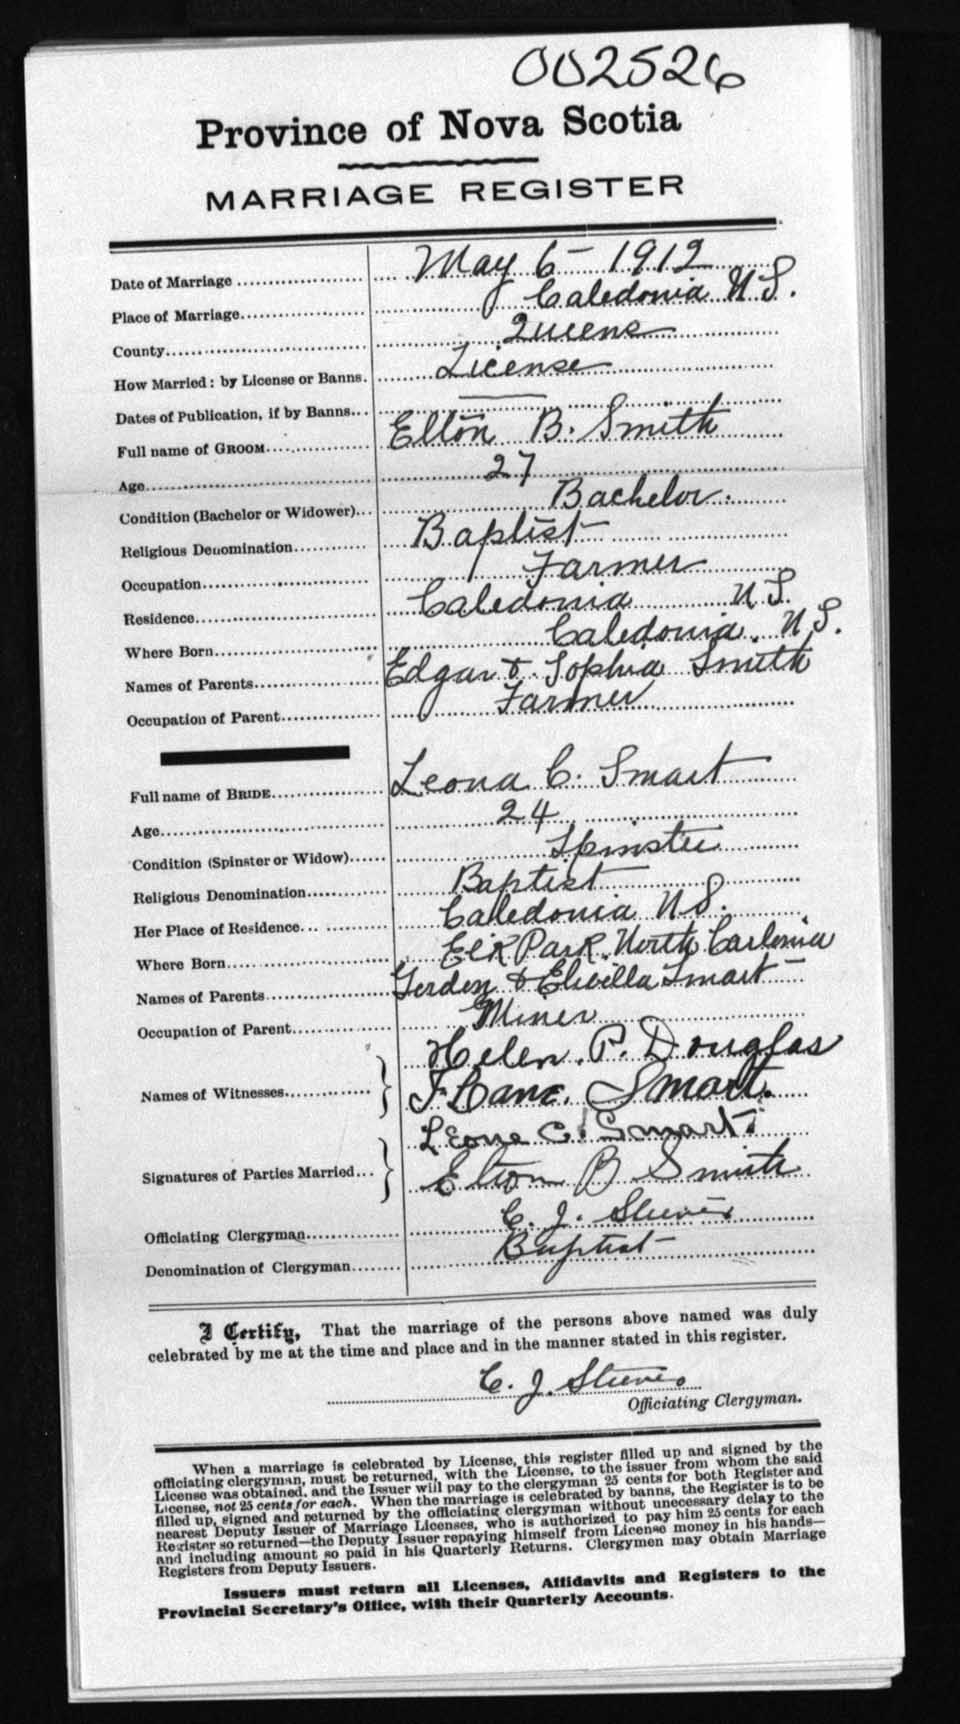 002526
Province of Nova Scotia
MARRIAGE REGISTER
Date of Marriage May 6 - 1912
Place of Marriage Caledonia N S.
County Queens
How Married: by License or Banns. License
Dates of Publication, if by Banns
Full name of GROOM Elton B. Smith
Age 27
Condition (Bachelor or Widower) Bachelor.
Religious Denomination Baptist
Occupation Farmer
Residence Caledonia N S.
Where Born Caledonia. N S.
Names of Parents Edgar & Sophia Smith
Occupation of Parent Farmer
Full name of BRIDE Leona C. Smart
Age 24
Condition (Spinster or Widow) Spinster
Religious Denomination Baptist
Her Place of Residence Caledonia N S.
Where Born Elk Park. North Carlonia
Names of Parents Gordon & Smart
Occupation of Parent Miner
Helen. P. Douglas
Names of Witnesses Smart.
Leona C. Smart.
Signatures of Parties Married Elton B Smith
Officiating Clergyman C. J. Steeves
Denomination of Clergyman Baptist
I Certify, That the marriage of the persons above named was duly
celebrated by me at the time and place and in the manner stated in this register.
C. J. Steeves
Officiating Clergyman.
When a marriage is celebrated by License, this register filled up and signed by the
officiating clergyman, must be returned, with the License, to the issuer from whom the said
License was obtained, and the Issuer will pay to the clergyman 25 cents for both Register and
License, not 25 cents for each. When the marriage is celebrated by banns, the Register is to be
filled up, signed and returned by the officiating clergyman without unnecessary delay to the
nearest Deputy Issuer of Marriage Licenses, who is authorized to pay him 25 cents for each
Register so returned—the Deputy Issuer repaying himself from License money in his hands—
and including amount so paid in his Quarterly Returns. Clergymen may obtain Marriage
Registers from Deputy Issuers.
Issuers must return all Licenses, Affidavits and Registers to the
Provincial Secretary's Office, with their Quarterly Accounts.